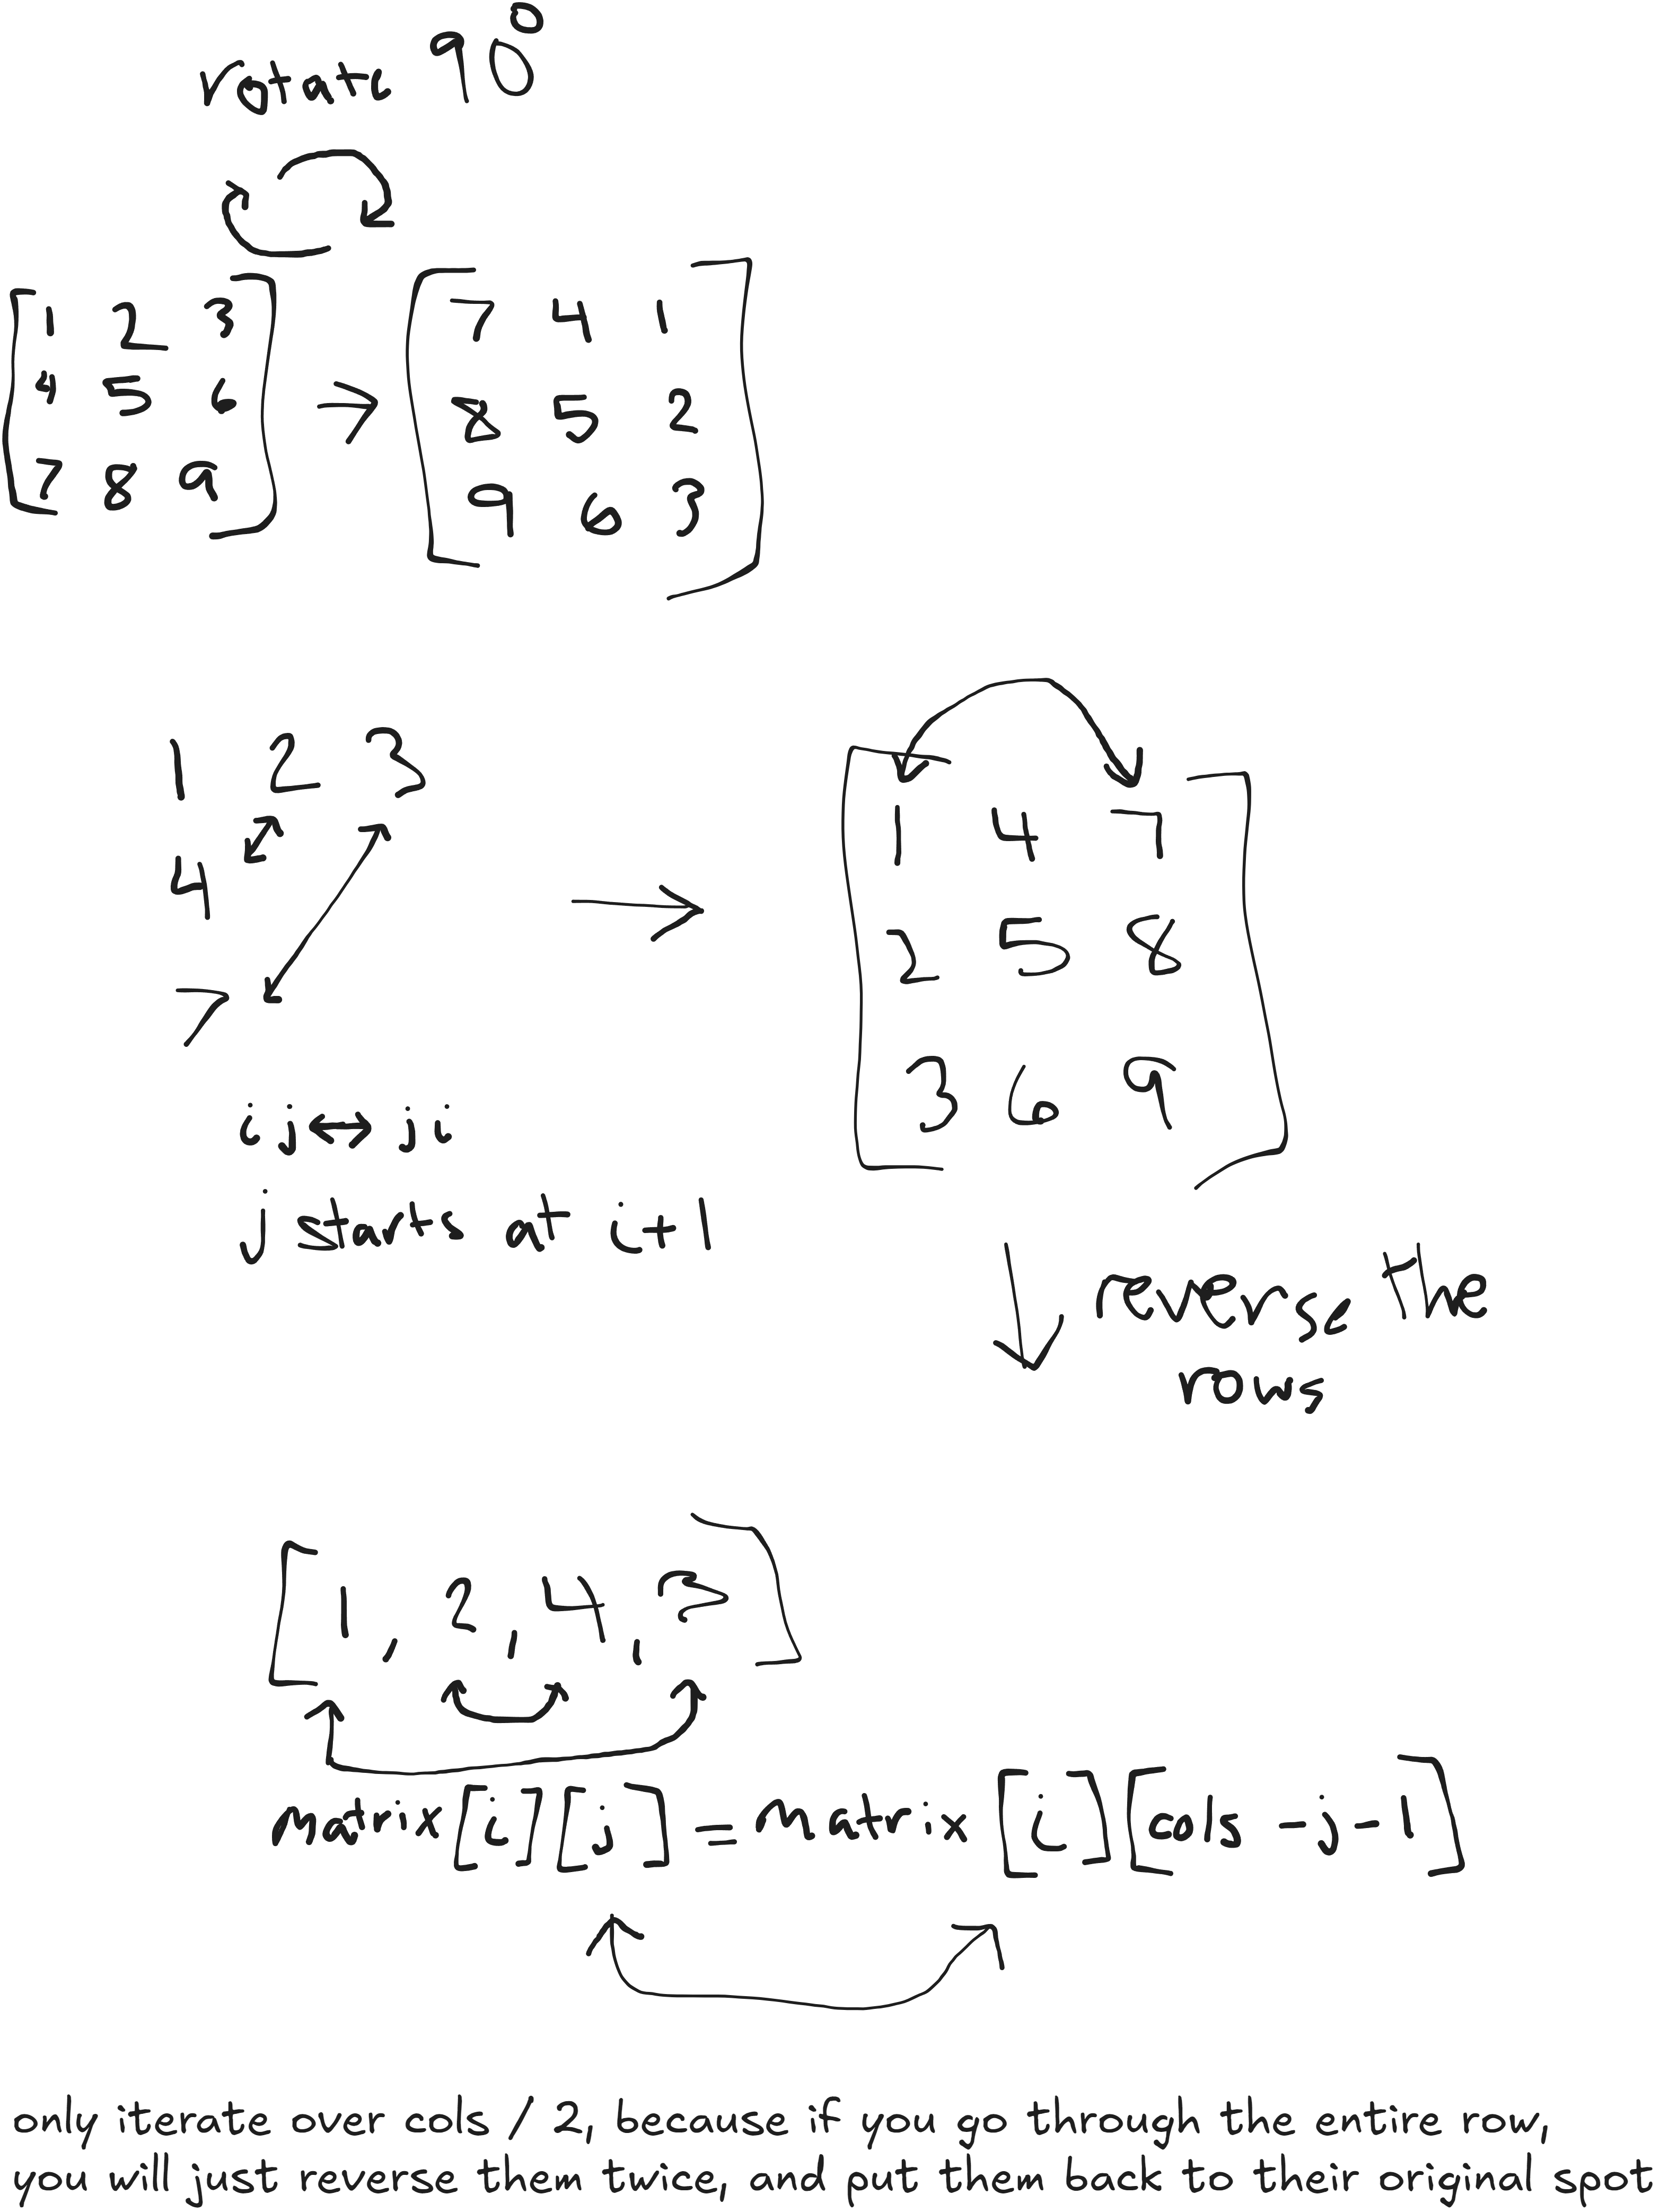 rotate 90°
1 2 3
4 5 6
7 8 9
7 4 1
8 5 2
9 6 3
1 2 3
4
7
i j ↔ j i
j starts at i+1
1 4 7
2 5 8
3 6 9
reverse the
rows
[1, 2, 4, 3]
matrix[i][j] = matrix[i][cols - j - 1]
only iterate over cols / 2, because if you go through the entire row,
you will just reverse them twice, and put them back to their original spot